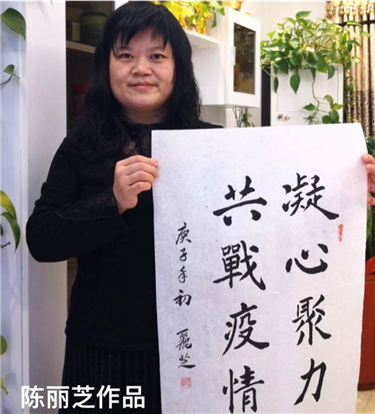 凝心聚力
共戰疫情
庚子年初
麗芝
陈丽芝作品